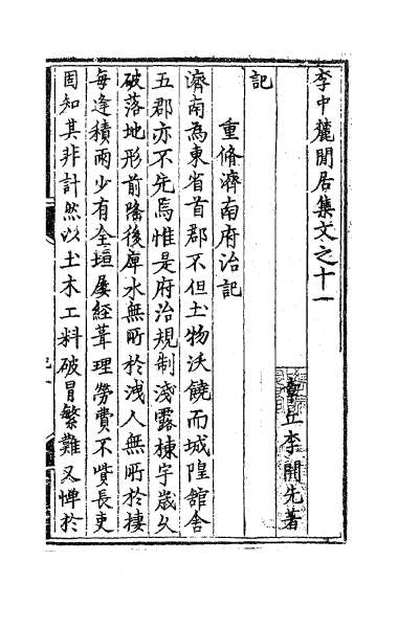 李中麓閒居集文之十一
章丘李開先著
記
重脩濟南府治記
濟南為東省首郡不但土物沃饒而城隍舘舍
五郡亦不先焉惟是府治規制淺露棟宇歲久
破落地形前隆後庳水無所於洩人無所於棲
每逢積雨少有全垣屡經葺理勞費不貲長吏
固知其非計然以土木工料破冒繁難又憚於